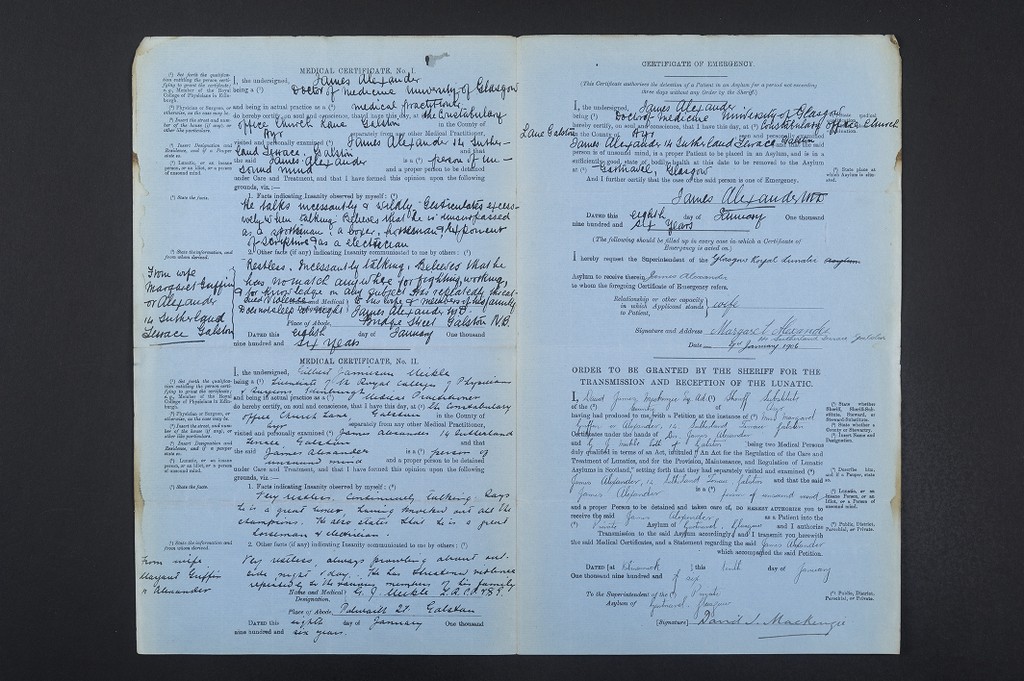 MEDICAL CERTIFICATE, No. I.
(¹) Set forth the qualification entitling the person certifying to grant the certificate; e.g., Member of the Royal College of Physicians in Edinburgh.
(²) Physician or Surgeon, or otherwise, as the case may be.
(³) Insert the street and number of the house (if any), or other like particulars.
(⁴) Insert Designation and Residence, and if a Pauper state so.
(⁵) Lunatic, or an insane person, or an idiot, or a person of unsound mind.
(⁶) State the facts.
(⁷) State the information, and from whom derived.
I, the undersigned, James Alexander
being a (¹) Doctor of medicine University of Glasgow
and being in actual practice as a (²) medical practitioner
do hereby certify, on soul and conscience, that I have this day, at (³) the Constabulary
office Church Lane Galston in the County of
Ayr separately from any other Medical Practitioner,
visited and personally examined (⁴) James Alexander 14 Suther-
land Terrace, Galston and that
the said James Alexander is a (⁵) person of un-
sound mind and a proper person to be detained
under Care and Treatment, and that I have formed this opinion upon the following
grounds, viz.:—
1. Facts indicating Insanity observed by myself: (⁶)
He talks incessantly & wildly. Gesticulates exces-
sively when talking. Believes that he is unsurpassed
as a sportsman, a boxer, horseman & exponent
of Scripture & as a electrician
2. Other facts (if any) indicating Insanity communicated to me by others: (⁷)
From wife
Margaret Griffin
or Alexander
14 Sutherland
Terrace Galston
Restless. Incessantly talking. Believes that he
has no match anywhere for fighting, working
& for knowledge on any subject. Has repeatedly threat-
ened violence to his wife & members of his family
Does not sleep at nights
Name and Medical Designation, James Alexander M.D.
Place of Abode, Bridge Street Galston N.B.
DATED this eighth day of January One thousand
nine hundred and six years
MEDICAL CERTIFICATE, No. II.
(¹) Set forth the qualification entitling the person certifying to grant the certificate; e.g., Member of the Royal College of Physicians in Edinburgh.
(²) Physician or Surgeon, or otherwise, as the case may be.
(³) Insert the street and number of the house (if any), or other like particulars.
(⁴) Insert Designation and Residence, and if a Pauper state so.
(⁵) Lunatic, or an insane person, or an idiot, or a person of unsound mind.
(⁶) State the facts.
(⁷) State the information and from whom derived.
I, the undersigned, Gilbert Jamieson Meikle
being a (¹) Licentiate of the Royal Colleges of Physicians
& Surgeons Edinburgh
and being in actual practice as a (²) Medical Practitioner
do hereby certify, on soul and conscience, that I have this day, at (³) the Constabulary
office Church Lane, Galston in the County of
Ayr separately from any other Medical Practitioner,
visited and personally examined (⁴) James Alexander 14 Sutherland
Terrace, Galston and that
the said James Alexander is a (⁵) person of
unsound mind and a proper person to be detained
under Care and Treatment, and that I have formed this opinion upon the following
grounds, viz.:—
1. Facts indicating Insanity observed by myself: (⁶)
Very restless. Continually talking. Says
he is a great boxer, having knocked out all the
champions. He also states that he is a great
horseman & electrician.
2. Other facts (if any) indicating Insanity communicated to me by others: (⁷)
From wife
Margaret Griffin
or Alexander
Very restless, always prowling about out-
side night & day. He has threatened violence
repeatedly to the various members of his family
Name and Medical Designation. G. J. Meikle L.R.C.P. & S.
Place of Abode, Polwarth St. Galston
DATED this eighth day of January One thousand
nine hundred and six years.
CERTIFICATE OF EMERGENCY.
(This Certificate authorises the detention of a Patient in an Asylum for a period not exceeding
three days without any Order by the Sheriff.)
I, the undersigned, James Alexander
being (¹) Doctor of medicine University of Glasgow
hereby certify, on soul and conscience, that I have this day, at (³) Constabulary office Church
Lane Galston in the County of Ayr seen and personally examined
James Alexander 14 Sutherland Terrace Galston and that the said
person is of unsound mind, is a proper Patient to be placed in an Asylum, and is in a
sufficiently good state of bodily health at this date to be removed to the Asylum
at (⁸) Gartnavel, Glasgow
(⁸) State place at which Asylum is situated.
And I further certify that the case of the said person is one of Emergency.
James Alexander M.D.
DATED this eighth day of January One thousand
nine hundred and six years
(The following should be filled up in every case in which a Certificate of
Emergency is acted on.)
I hereby request the Superintendent of the Glasgow Royal Lunatic asylum
Asylum to receive therein James Alexander
to whom the foregoing Certificate of Emergency refers.
Relationship or other capacity in which Applicant stands to Patient } wife
Signature and Address Margaret Alexander
14 Sutherland Terrace Galston
Date 9th January 1906
ORDER TO BE GRANTED BY THE SHERIFF FOR THE
TRANSMISSION AND RECEPTION OF THE LUNATIC.
I, David Mackenzie (¹) Sheriff Substitute
of the (²) County of Ayr
having had produced to me with a Petition at the instance of (³) Margaret
Griffin or Alexander, 14 Sutherland Terrace Galston
Certificates under the hands of Drs. James Alexander
and G. J. Meikle both of Galston being two Medical Persons
duly qualified in terms of an Act, intituled "An Act for the Regulation of the Care and
Treatment of Lunatics, and for the Provision, Maintenance, and Regulation of Lunatic
Asylums in Scotland," setting forth that they had separately visited and examined (⁴)
James Alexander, 14 Sutherland Terrace Galston and that the said
James Alexander is a (⁵) person of unsound mind
and a proper Person to be detained and taken care of, DO HEREBY AUTHORIZE you to
receive the said James Alexander as a Patient into the
(⁶) Private Asylum of Gartnavel, Glasgow and I authorize
Transmission to the said Asylum accordingly; and I transmit you herewith
the said Medical Certificates, and a Statement regarding the said James Alexander
which accompanied the said Petition.
(¹) State whether Sheriff, Sheriff-Substitute, Steward, or Steward-Substitute.
(²) State whether County or Stewartry.
(³) Insert Name and Designation.
(⁴) Describe him, and, if a Pauper, state so.
(⁵) Lunatic, or an Insane Person, or an Idiot, or a Person of unsound mind.
(⁶) Public, District, Parochial, or Private.
DATED [at Kilmarnock ] this tenth day of January
One thousand nine hundred and six
To the Superintendent of the (⁶) Private
Asylum of Gartnavel, Glasgow
(⁶) Public, District, Parochial, or Private.
[Signature] David J. Mackenzie